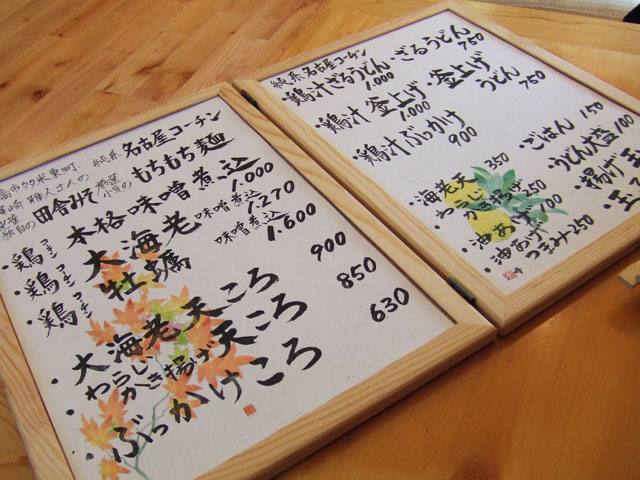 純系 名古屋コーチン
田舎みそ
もちもち麺
・鶏 コーチン 本格味噌煮込 1.000
・鶏 コーチン 大海老 味噌煮込 1.270
・鶏 コーチン 牡蠣 味噌煮込 1.600
・大海老天ころ 900
・わらじかき揚げ天ころ 850
・ぶっかけころ 630
純系 名古屋コーチン
・鶏汁ざるうどん 1.000
・ざるうどん 750
・鶏汁 釜上げ 1.000
・釜上げうどん 750
・鶏汁ぶっかけ 900
・海老天 350
・わらじかき揚げ
・油あげ 100
・油あげつまみ 250
・ごはん 150
・うどん大盛 100
・揚げ玉